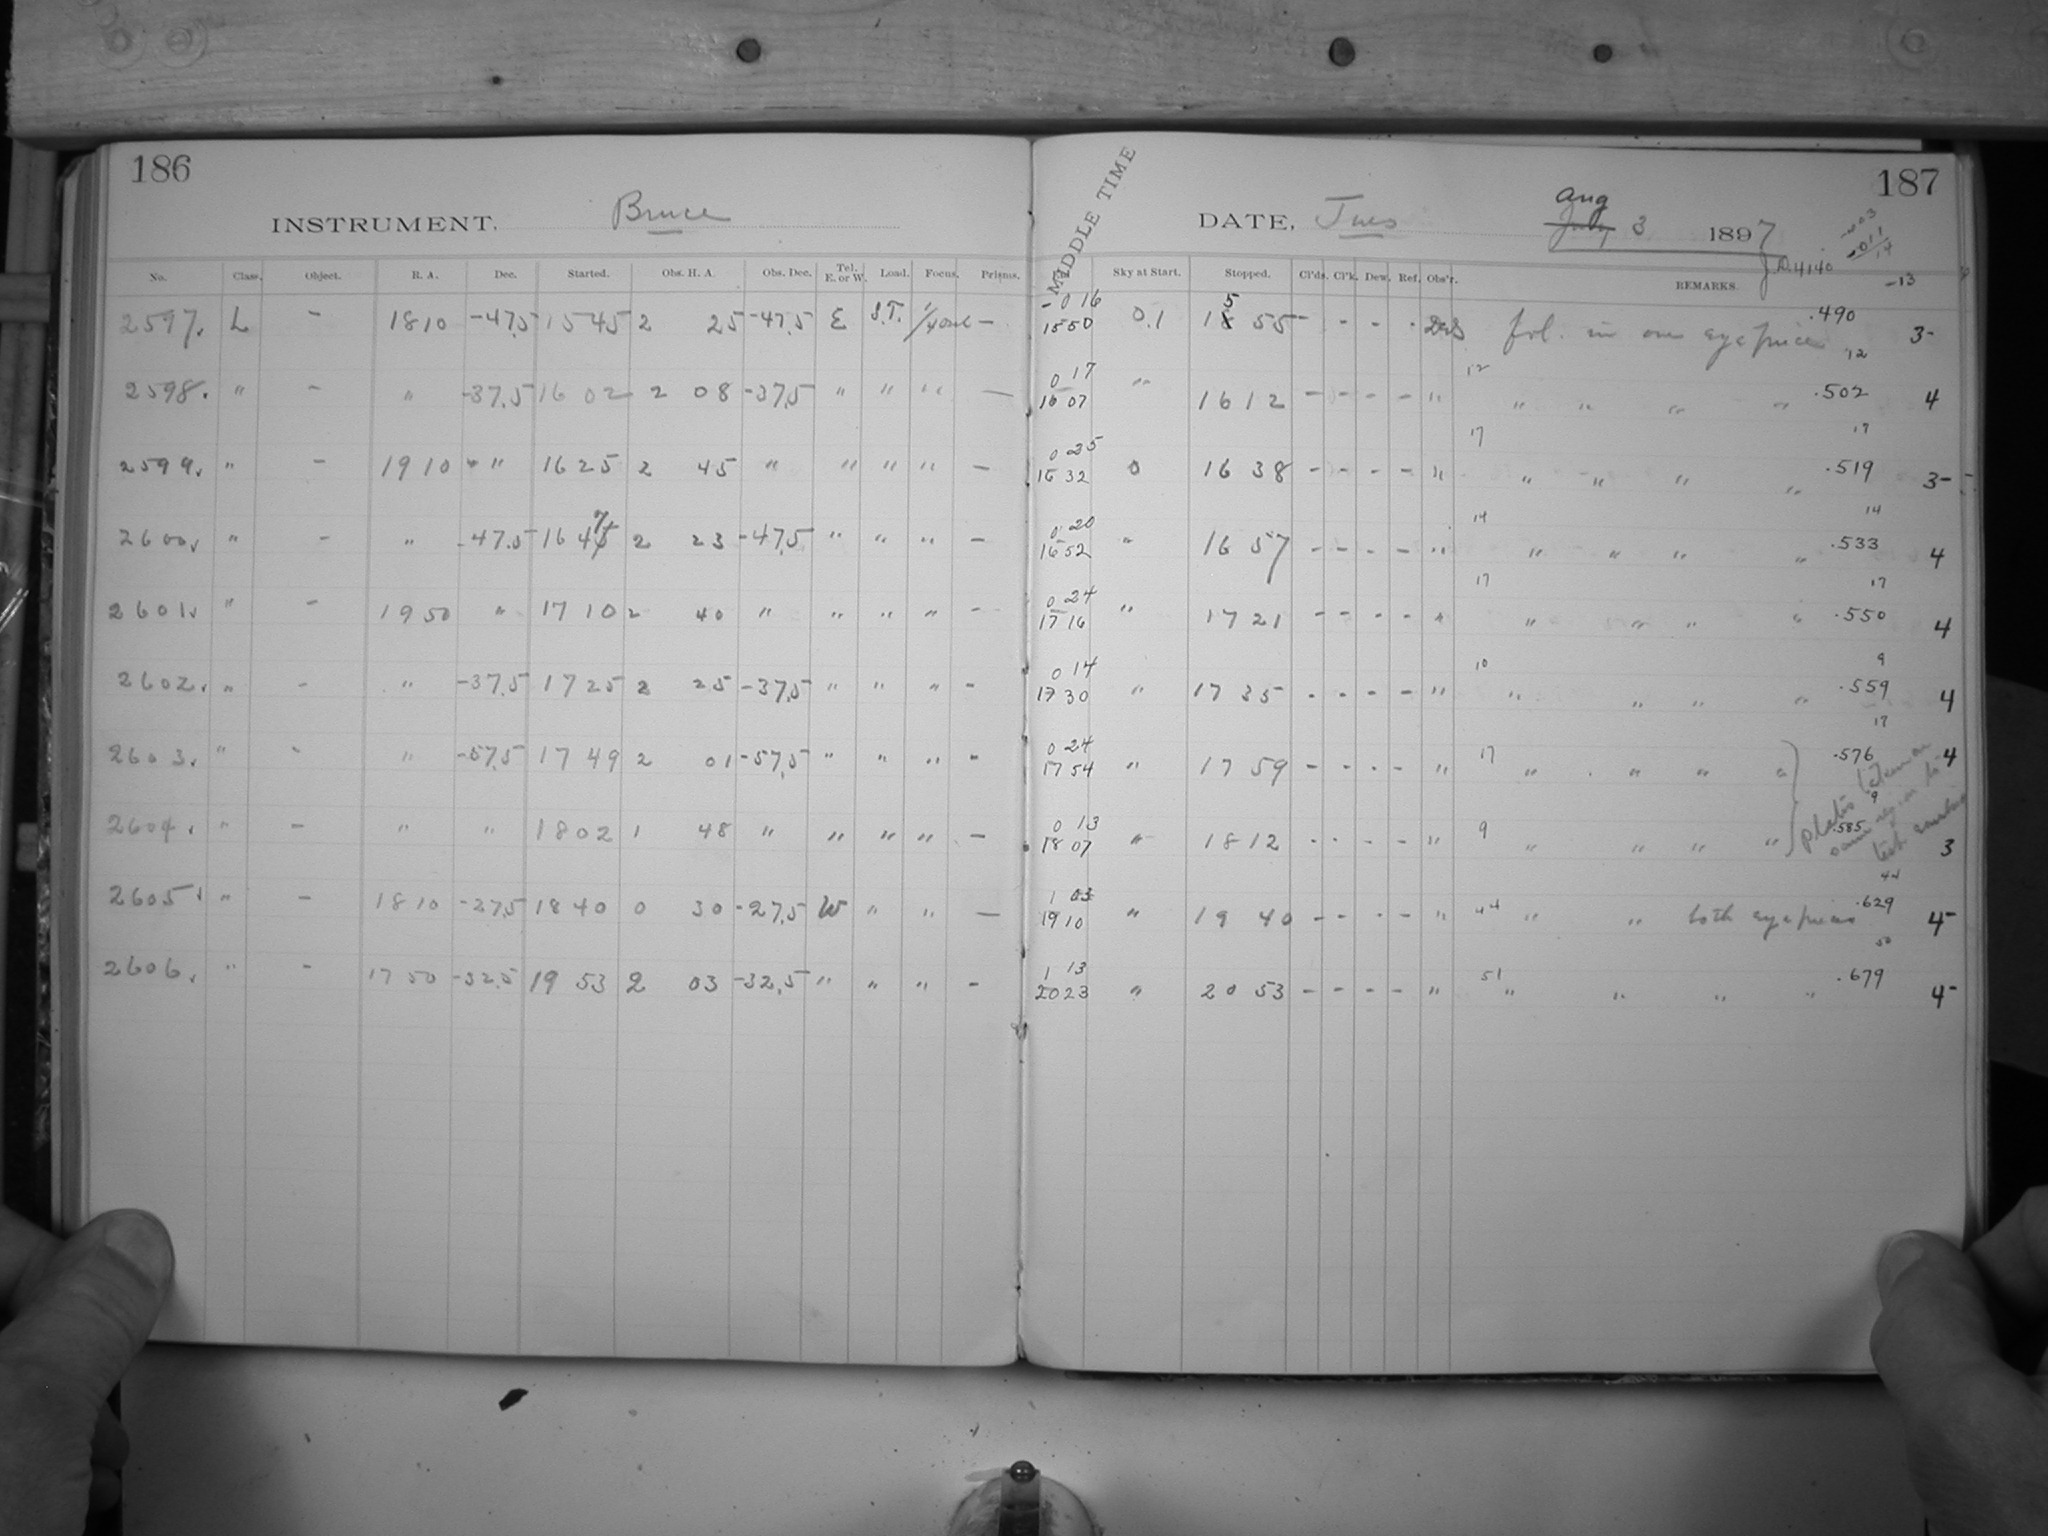 186
INSTRUMENT. Bruce
No. Class. Object. R. A. Dec. Started. Obs. H. A. Obs. Dec. Tel. E. or W. Load. Focus. Prisms.
2597. L - 1810 -47.5 1545 2 25 -47.5 E S.T. -
2598. " - " -37.5 1602 2 08 -37.5 " " " -
2599. " - 1910 " 1625 2 45 " " " " -
2600. " - " -47.5 1647 2 23 -47.5 " " " -
2601. " - 1950 " 1710 2 40 " " " " -
2602. " - " -37.5 1725 2 25 -37.5 " " " -
2603. " - " -57.5 1749 2 01 -57.5 " " " -
2604. " - " " 1802 1 48 " " " " -
2605. " - 1810 -27.5 1840 0 30 -27.5 W " " -
2606. " - 1750 -32.5 1953 2 03 -32.5 " " " -
187
MIDDLE TIME
DATE, Tues Aug
July 3 1897
J.D. 4140
-13
Sky at Start. Stopped. Cl'ds. Cl'k. Dew. Ref. Obs'r. REMARKS.
-0 16
1550 0.1 15 55 - - - - fol. in one eyepiece .490 3-
12
0 17 12
1607 " 1612 - - - - " " " " " .502 4
17
0 25 17
1632 0 1638 - - - - " " " " " .519 3-
14
0 20 14
1652 " 1657 - - - - " " " " " .533 4
17
0 24 17
1716 " 1721 - - - - " " " " " .550 4
9
0 14 10
1730 " 1735 - - - - " " " " " .559 4
17
0 24 17
1754 " 1759 - - - - " " " " " .576 4
9
0 13 9
1807 " 1812 - - - - " " " " " .585 3
plates taken on
same region to
test
44
1 03 44
1910 " 1940 - - - - " " " both eyepieces .629 4-
50
1 13 51
2023 " 2053 - - - - " " " " " .679 4-